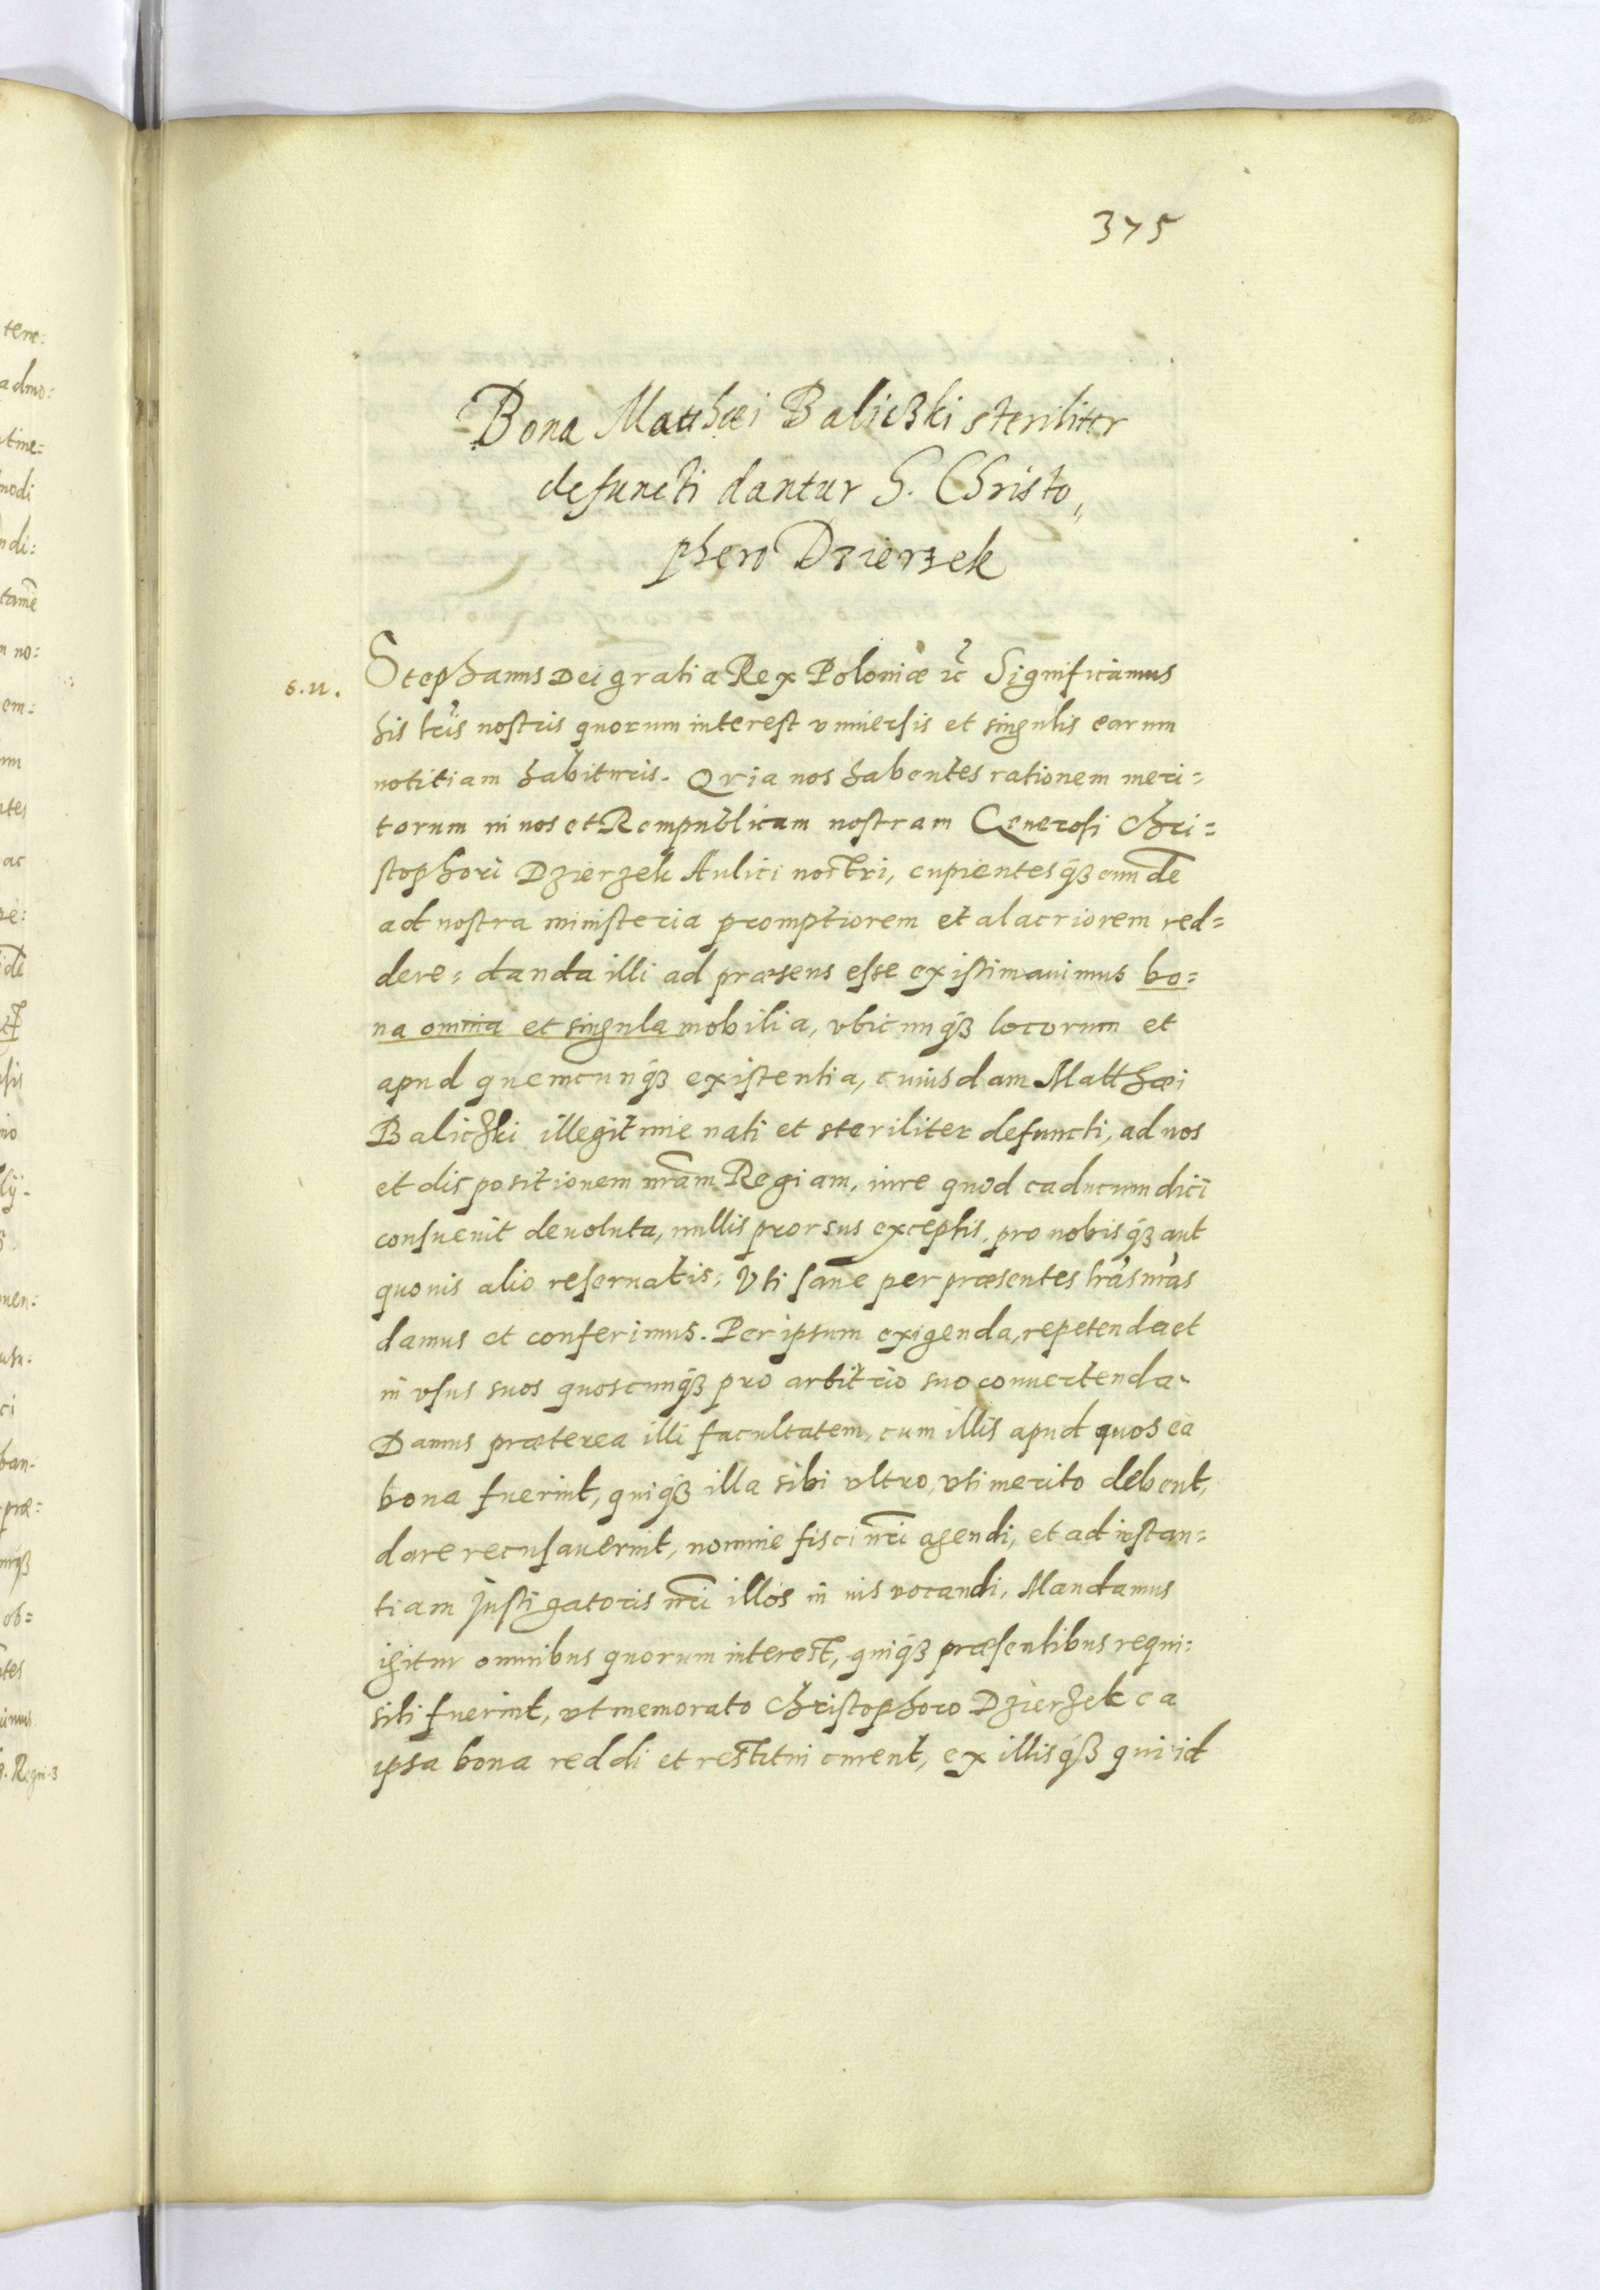 375
Bona Matthæi Baliczki steriliter
defuncti dantur G. Christo„
phero Dzierzek
s.u. Stephanus Dei gratia Rex Poloniæ &c Significamus
his lr̃is nostris quorum interest vniuersis et singulis earum
notitiam habituris. Qvia nos habentes rationem meri=
torum in nos et Rempublicam nostram Generosi Chri=
stophori Dzierzek Aulici nostri, cupientesq̃ȝ eundẽ
ad nostra ministeria promptiorem et alacriorem red=
dere, danda illi ad præsens esse existimauimus bo=
na omnia et singula mobilia, vbicunq̃ȝ locorum et
apud quemcunq̃ȝ existentia, cuiusdam Matthæi
Baliczki illegitimie nati et steriliter defuncti, ad nos
et dispositionem nr̃am Regiam, iure quod caducum dici
consueuit deuoluta, nullis prorsus exceptis, pro nobisq̃ȝ aut
quouis alio reseruatis; Vti sane per præsentes lrãs nrãs
damus et conferimus. Per ipsum exigenda, repetenda et
in vsus suos quoscunq̃ȝ pro arbitrio suo conuertenda.
Damus præterea illi facultatem, cum illis apud quos ea
bona fuerint, quiq̃ȝ illa sibi vltro, vti merito debent,
dare recusauerint, nomine fisci nr̃i agendi, et ad instan=
tiam Justigatoris nr̃i illos in ius vocandi, Mandamus
igitur omnibus quorum interest, quiq̃ȝ præsentibus requi=
siti fuerint, vt memorato Christophoro Dzierzek ea
ipsa bona reddi et restitui curent, ex illisq̃ȝ qui id